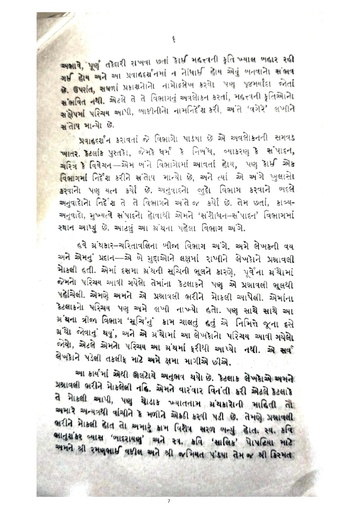 ૬
અભાવે, પૂર્ણ તકેદારી રાખવા છતાં કોઈ મહત્ત્વની કૃતિ ખ્યાલ બહાર રહી
ગઈ હોય અને આ પ્રવાહદર્શનમાં ન નોંધાઈ હોય એવું બનવાનો સંભવ
છે. ઉપરાંત, સઘળાં પ્રકાશનોનો નામોલ્લેખ કરવો પણ પૃષ્ઠમર્યાદા જોતાં
સંભવિત નથી. એટલે તે તે વિભાગનું અવલોકન કરતાં, મહત્ત્વની કૃતિઓનો
સંક્ષેપમાં પરિચય આપી, બાકીનીનો નામનિર્દેશ કરી, અંતે 'વગેરે' લખીને
સંતોષ માન્યો છે.
પ્રવાહદર્શન કરાવતાં જે વિભાગો પાડ્યા છે એ અવલોકનની સગવડ
ખાતર. કેટલાંક પુસ્તકો, જેમકે ધર્મ કે નિબંધ, વ્યાકરણ કે સંપાદન,
ચરિત્ર કે વિવેચન—એમ બંને વિભાગોમાં આવતાં હોય, પણ કોઈ એક
વિભાગમાં નિર્દેશ કરીને સંતોષ માન્યો છે, અને ત્યાં એ અંગે ખુલાસો
કરવાનો પણ યત્ન કર્યો છે. અનુવાદનો જુદો વિભાગ કરવાને બદલે
અનુવાદોનો નિર્દેશ તે તે વિભાગને અંતે જ કર્યો છે. તેમ છતાં, કાવ્ય-
અનુવાદો, મુખ્યત્વે સંપાદનો હોવાથી એમને 'સંશોધન-સંપાદન' વિભાગમાં
સ્થાન આપ્યું છે. આટલું આ ગ્રંથના પહેલા વિભાગ અંગે.
હવે ગ્રંથકાર-ચરિતાવલિના બીજા વિભાગ અંગે. અમે લેખકની વય
અને એમનું પ્રદાન—એ બે મુદ્દાઓને લક્ષમાં રાખીને લેખકોને પ્રશ્નાવલી
મોકલી હતી. એમાં દસમા ગ્રંથની સૂચિની ભૂલને કારણે, પૂર્વેના ગ્રંથોમાં
જેમનો પરિચય આવી ગયેલો તેમાંના કેટલાકને પણ એ પ્રશ્નાવલી ભૂલથી
પહોંચેલી. એમણે અમને એ પ્રશ્નાવલી ભરીને મોકલી આપેલી. એમાંના
કેટલાકનો પરિચય પણ અમે લખી નાખ્યો હતો. પણ સાથે સાથે આ
ગ્રંથના ત્રીજા વિભાગ 'સૂચિ'નું કામ ચાલતું હતું એ નિમિત્તે જૂના દસે
ગ્રંથો જોવાનું થયું, અને એ ગ્રંથોમાં આ લેખકોનો પરિચય આવી ગયેલો
જોયો, એટલે એમનો પરિચય આ ગ્રંથમાં ફરીથી આપ્યો નથી. એ સર્વ
લેખકોને પડેલી તકલીફ માટે અમે ક્ષમા માગીએ છીએ.
આ કાર્યમાં એથી ઊલટોયે અનુભવ થયો છે. કેટલાક લેખકોએ અમને
પ્રશ્નાવલી ભરીને મોકલેલી નહિ. એમને વારંવાર વિનંતી કરી એટલે કેટલાકે
તે મોકલી આપી, પણ થોડાક ખ્યાતનામ ગ્રંથકારોની માહિતી તો
અમારે અન્યત્રથી વાંચીને કે મળીને એકઠી કરવી પડી છે. તેમણે પ્રશ્નાવલી
ભરીને મોકલી હોત તો અમારું કામ વિશેષ સરળ બન્યું હોત. સ્વ. કવિ
ભાનુશંકર વ્યાસ 'બાદરાયણ' અને સ્વ. કવિ માટે
અમને શ્રી રમણભાઈ વકીલ અને શ્રી જમિયત પંડ્યા તેમ જ શ્રી કિસ્મત
7